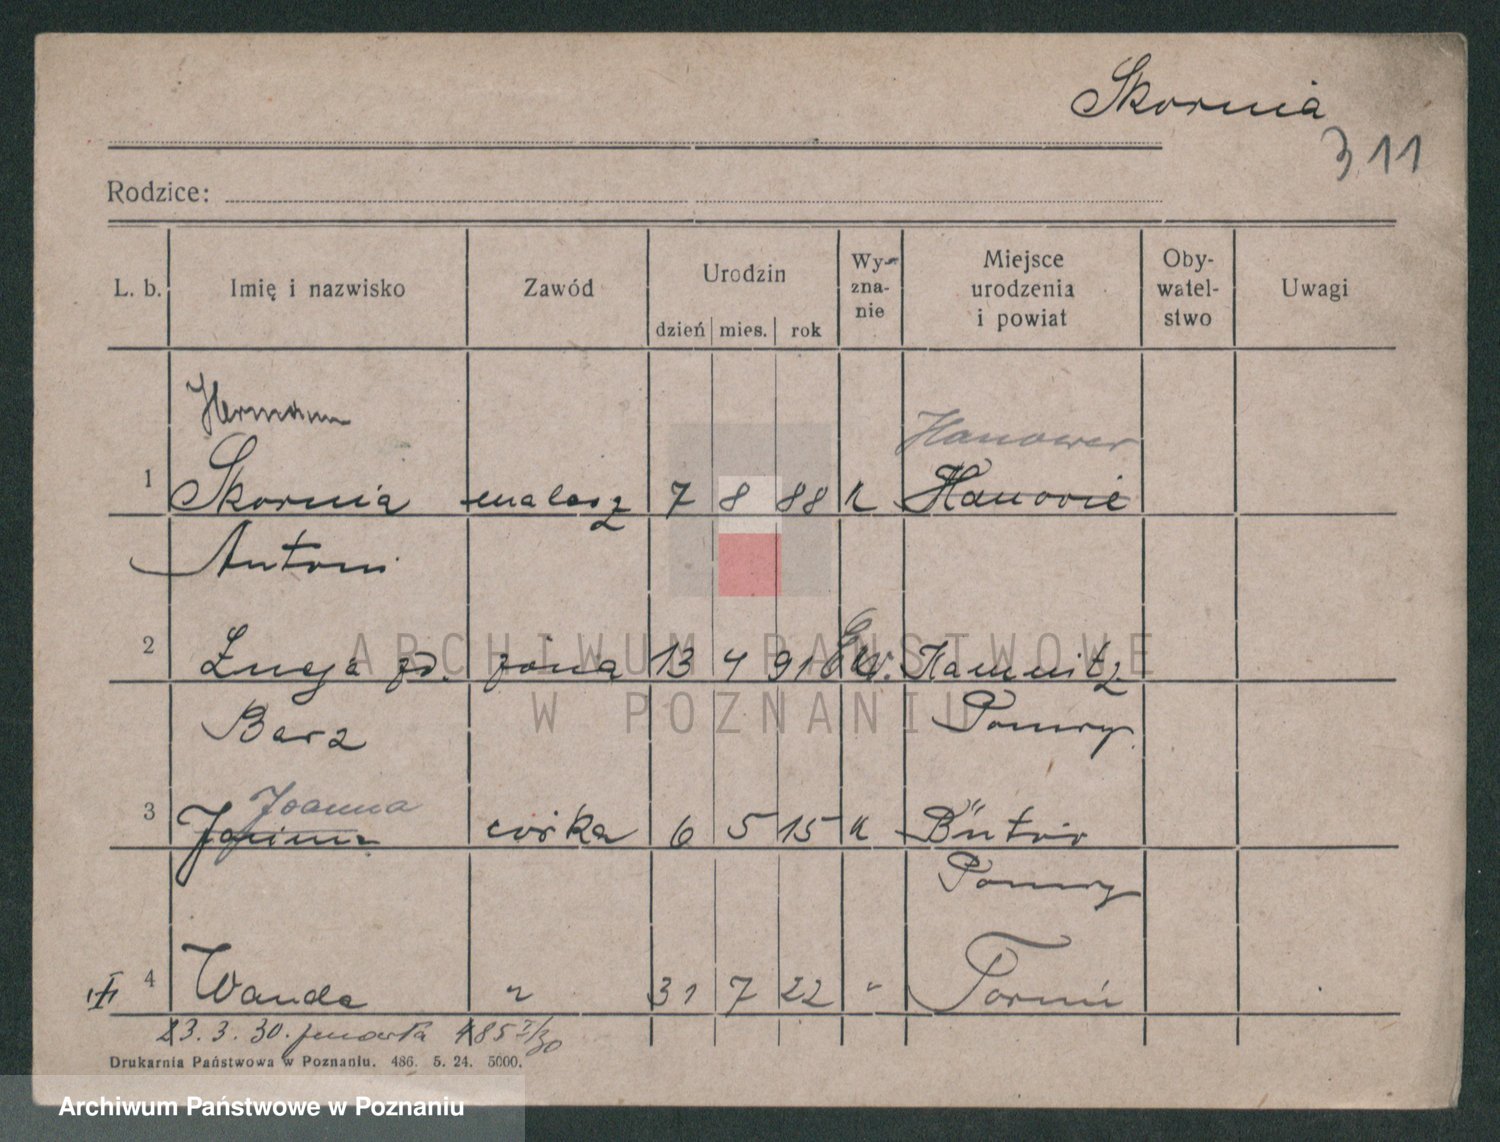 Skornia
311
Rodzice:
L. b. Imię i nazwisko Zawód Urodzin dzień mies. rok Wy-zna-nie Miejsce urodzenia i powiat Oby-watel-stwo Uwagi
Hermann
Hanower
1 Skornia malarz 7 8 88 k Hanovie
Antoni
2 zd. żona 13 4 91 Ew. Kamnitz
Barz Pomry.
Joanna
3 córka 6 5 15 k Bütow
Pomry
4 Wanda " 31 7 22 " Toruń
23. 3. 30. zmarła 485 I/30
Drukarnia Państwowa w Poznaniu. 486. 5. 24. 5000.
ARCHIWUM PAŃSTWOWE
W POZNANIU
Archiwum Państwowe w Poznaniu